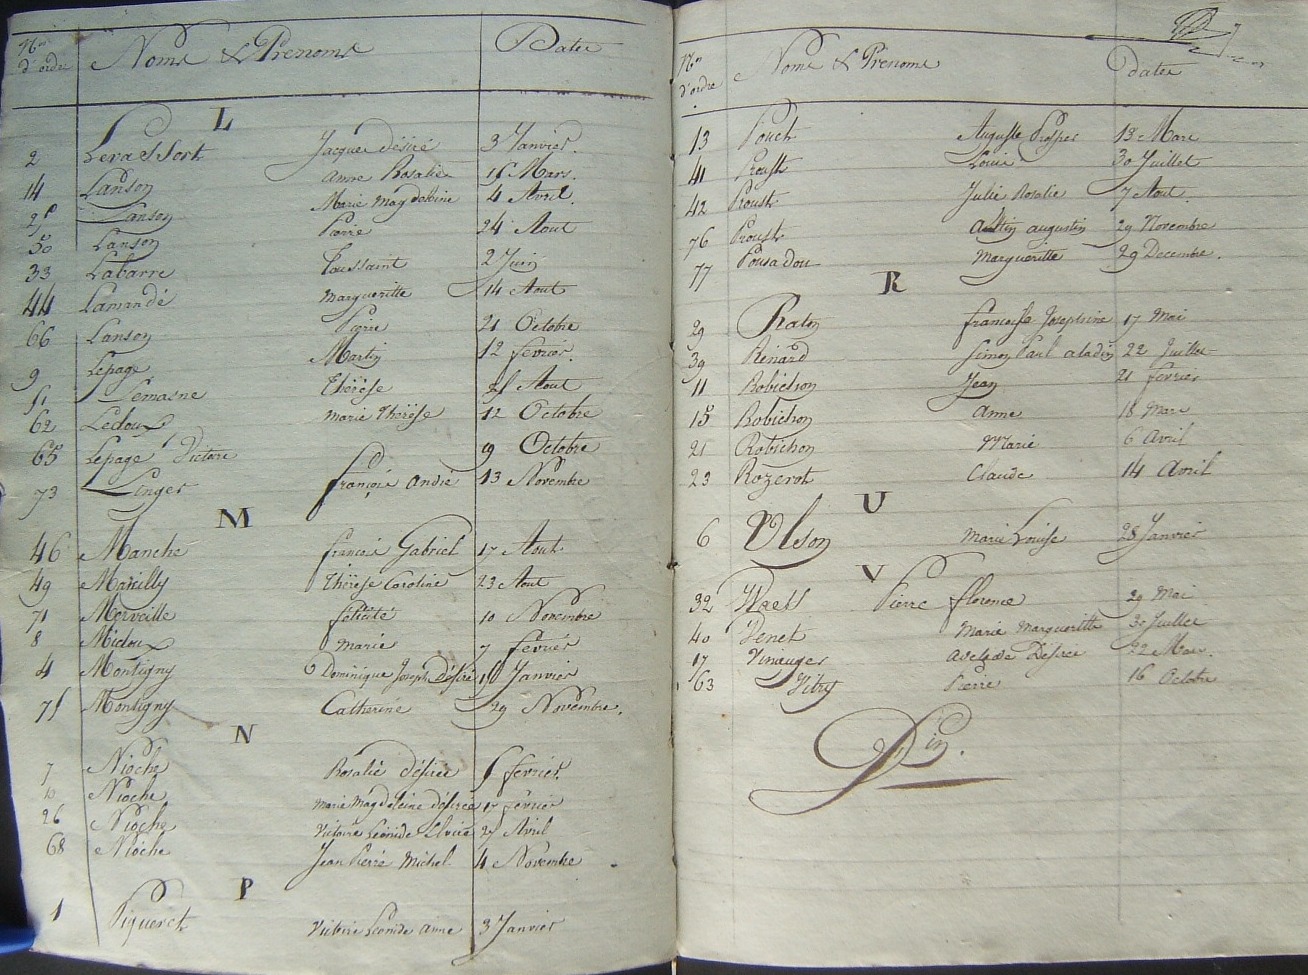 Nos d'ordre Noms & Prenoms Dates
L
2 Levassort Jacques désiré 3 Janvier.
14 Lanson Anne Rosalie 16 Mars.
25 Lanson Marie Magdeleine 4 Avril.
50 Lanson Pierre 24 Aout
33 Labarre Toussaint 2 Juin
44 Lamandé Margueritte 14 Aout
66 Lanson Pierre 21 Octobre
9 Lepage Martin 12 fevrier.
51 Lemasne Thérèse 25 Aout
62 Ledoux marie Thérèse 12 Octobre
65 Lepage Victoire 19 Octobre
73 Linger françois André 13 Novembre
M
46 Manche francois Gabriel 17 Aout
49 Marcilly Thérèse Caroline 23 Aout
71 Merveille félicité 10 Novembre
8 Midoux Marie 7 fevrier
4 Montigny Dominique Joseph Désiré 18 Janvier
75 Montigny Catherine 29 Novembre.
N
7 Nioche Rosalie désirée 6 fevrier.
10 Nioche Marie Magdeleine désirée 17 fevrier
26 Nioche Victoire Léonide Elvire 27 Avril
68 Nioche Jean Pierre Michel 4 Novembre
P
1 Piqueret Victoire Léonide Anne 3 Janvier
Nos d'ordre Noms & Prenoms dates
13 Pouch Auguste Prosper 13 Mars
41 Proust Louis 30 Juillet
42 Proust Julie Rosalie 7 Aout.
76 Proust augustin 29 Novembre
77 Pousadou Margueritte 29 Decembre.
R
29 Raton francoise Josephine 17 Mai
39 Renard Simon Paul aladin 22 Juillet
11 Robichon Jean 21 fevrier
15 Robichon Anne 18 Mars
21 Robichon Marie 6 Avril
23 Rozerot Claude 14 Avril
U
6 Ulson Marie Louise 28 Janvier
V
32 Waels Pierre florence 29 Mai
40 Venet Marie Margueritte 30 Juillet
17 Vinauger Adelaide Désirée 22 Mars.
63 Vitry Pierre 16 Octobre
fin.